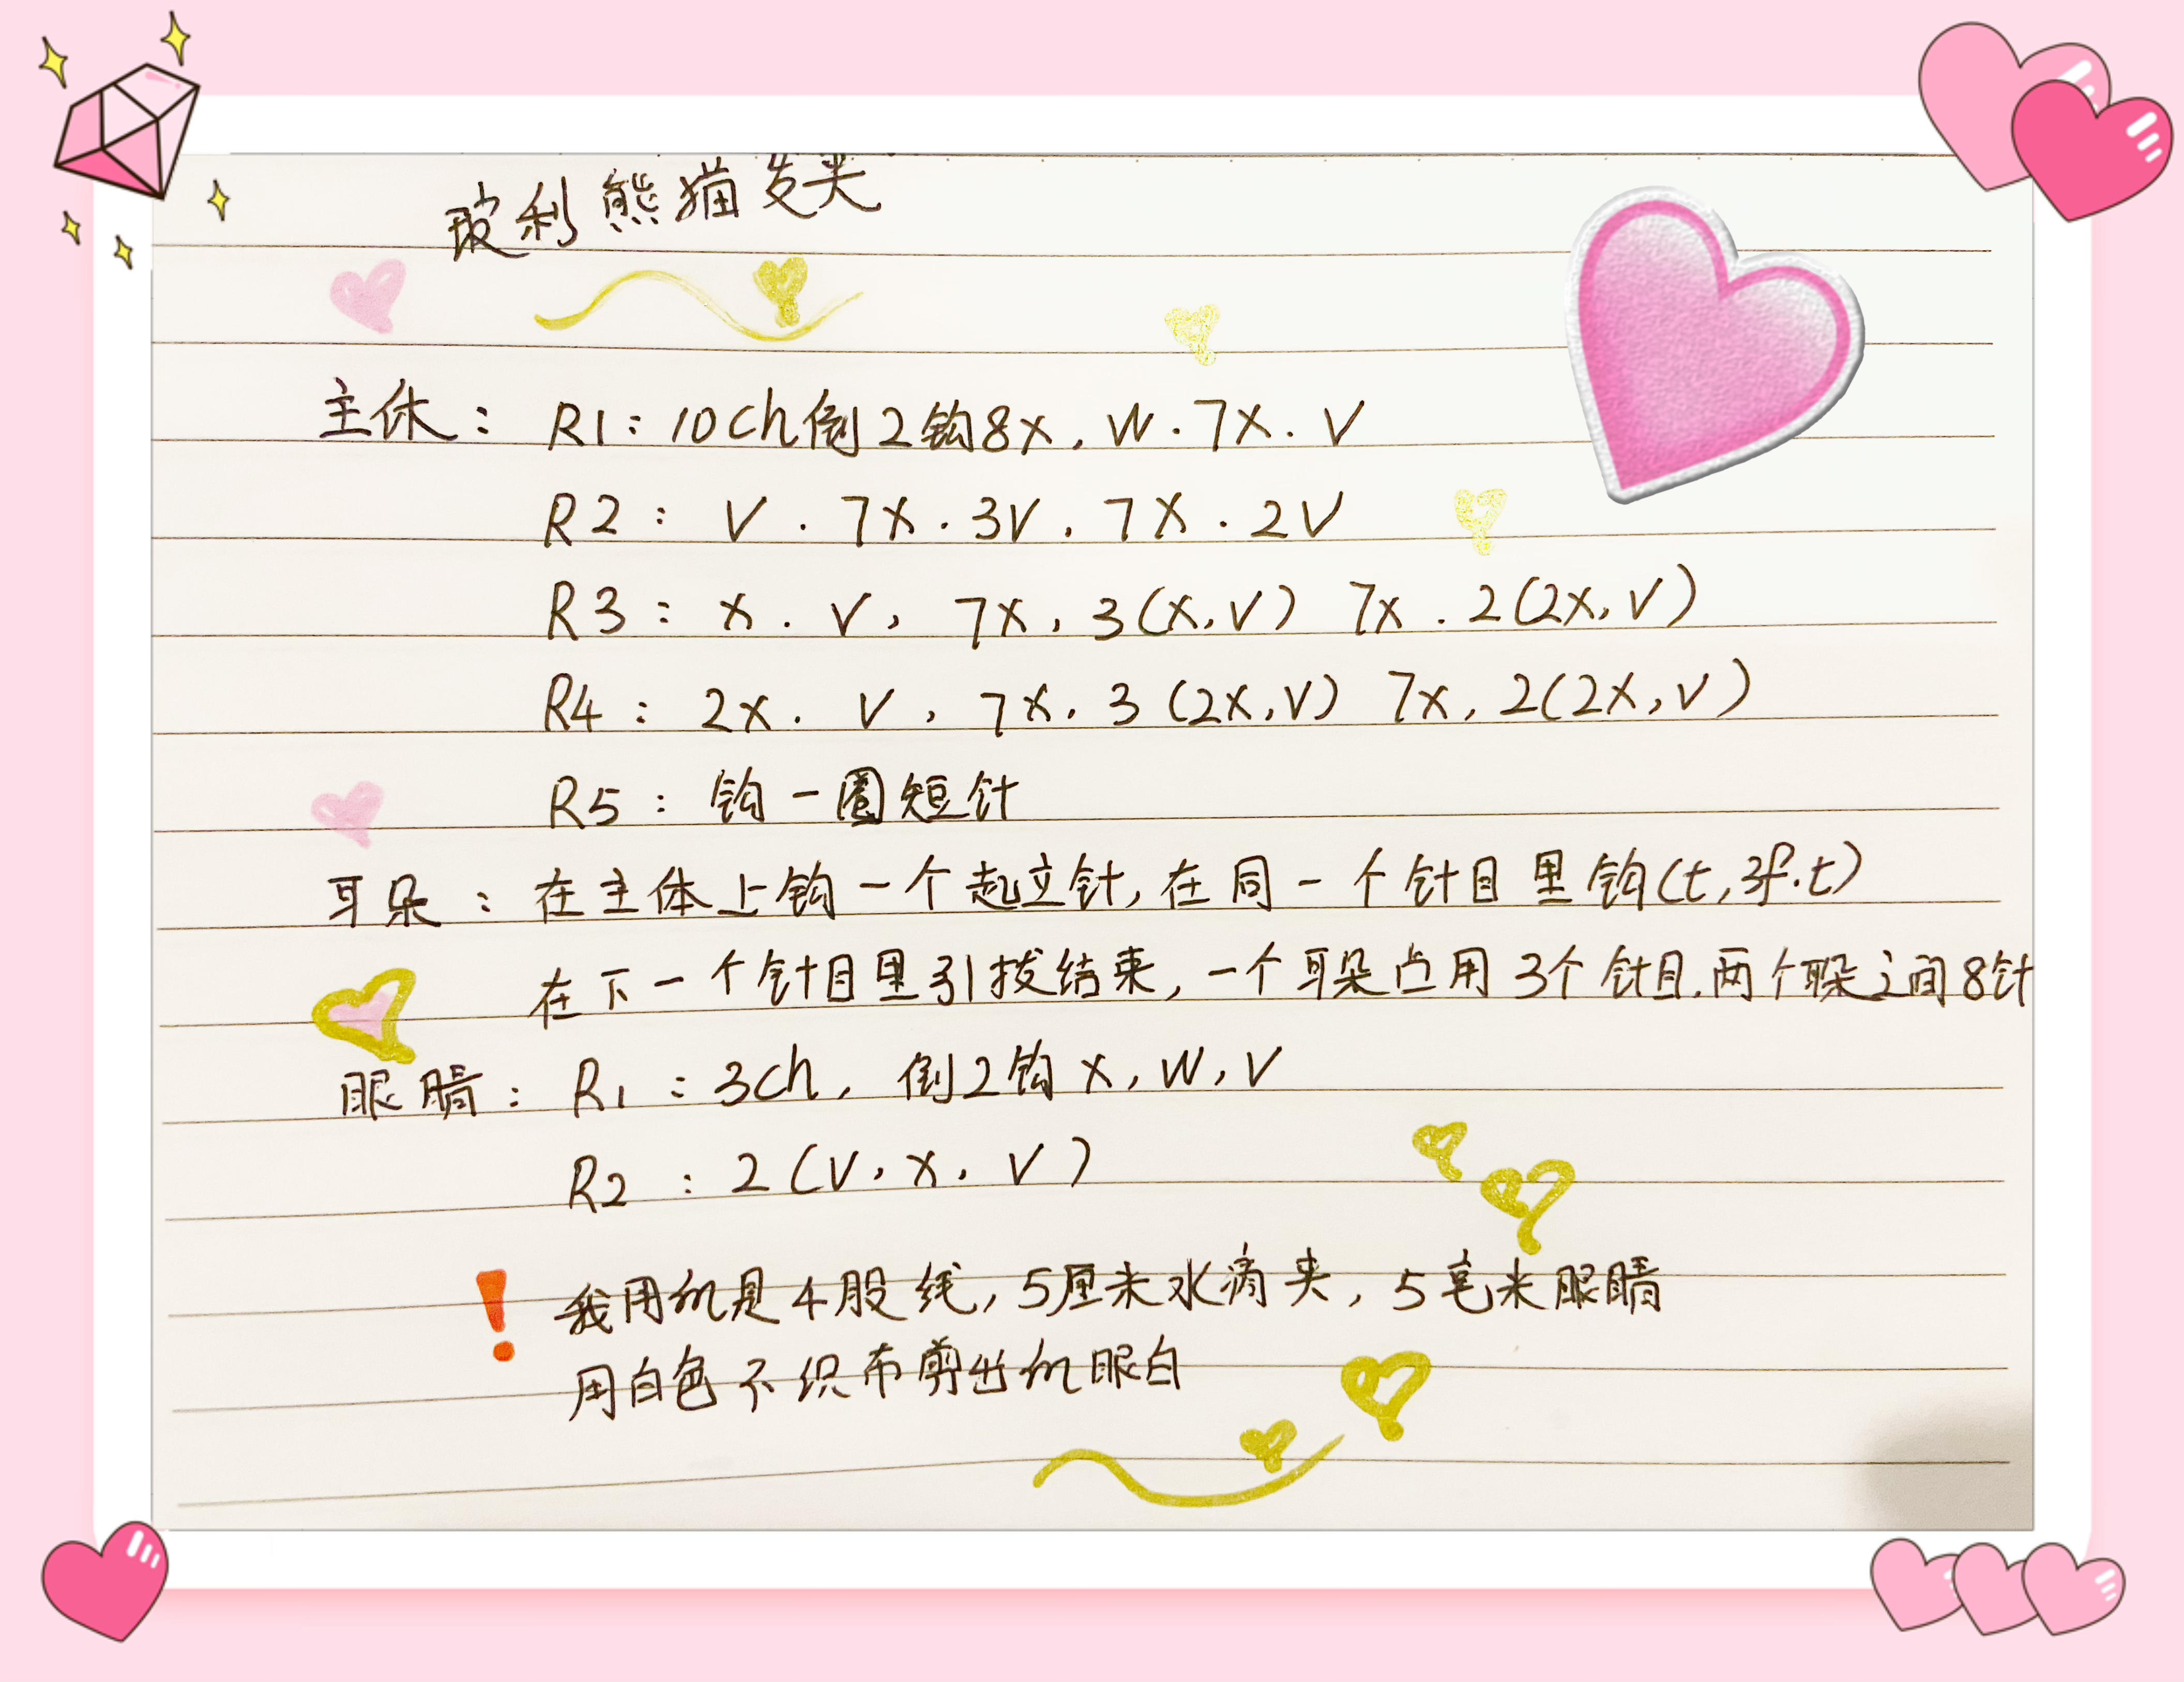 玻利熊猫发夹
主体： R1：10ch倒2钩8x，W．7X．V
R2： V．7X．3V．7X．2V
R3： x．V，7X，3(X,V) 7x．2(2X,V)
R4： 2x．V，7x．3(2X,V) 7x，2(2X,V)
R5：钩一圈短针
耳朵：在主体上钩一个起立针，在同一个针目里钩(t,3f.t)
在下一个针目里引拔结束，一个耳朵占用3个针目．两个耳朵之间8针
眼睛：R1：3ch，倒2钩x，W，V
R2：2(V．X．V)
！我用的是4股线，5厘米水滴夹，5毫米眼睛
用白色不织布剪出的眼白